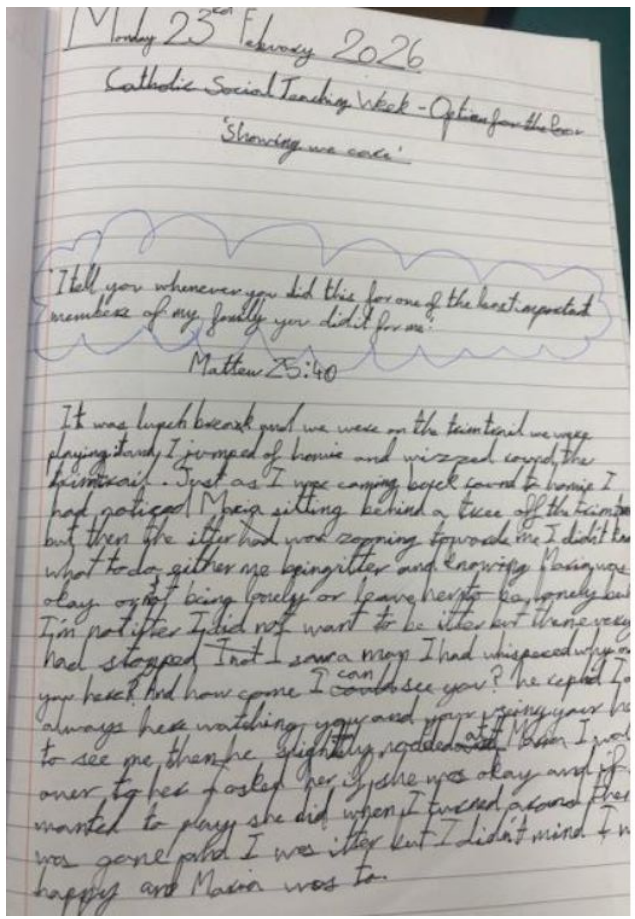 Monday 23rd February 2026
Catholic Social Teaching Week - Option for the Poor
'Showing we care'
'I tell you whenever you did this for one of the least important
members of my family you did it for me.'
Mattew 25:40
It was lunch break and we were on the trimtrail we were
playing itandy I jumped of homie and wizzed round the
trimtrail. Just as I was coming back round to homie I
had noticed Maria sitting behind a tree off the trimtra
but then the itter had was zooming towards me I didn't kno
what to do, either me being itter and knowing Maria was
okay or not being lonely or leave her to be lonely bu
I'm not itter I did not want to be itter but then every
had stopped I saw a man I had whispered why a
you here? And how come I can see you? he replied I a
always here watching you and your using your he
to see me, then he slightly nodded at Maria I wal
over to her I asked her if she was okay and if
wanted to play she did when I turned around the
was gone and I was itter but I didn't mind I w
happy and Maria was to.